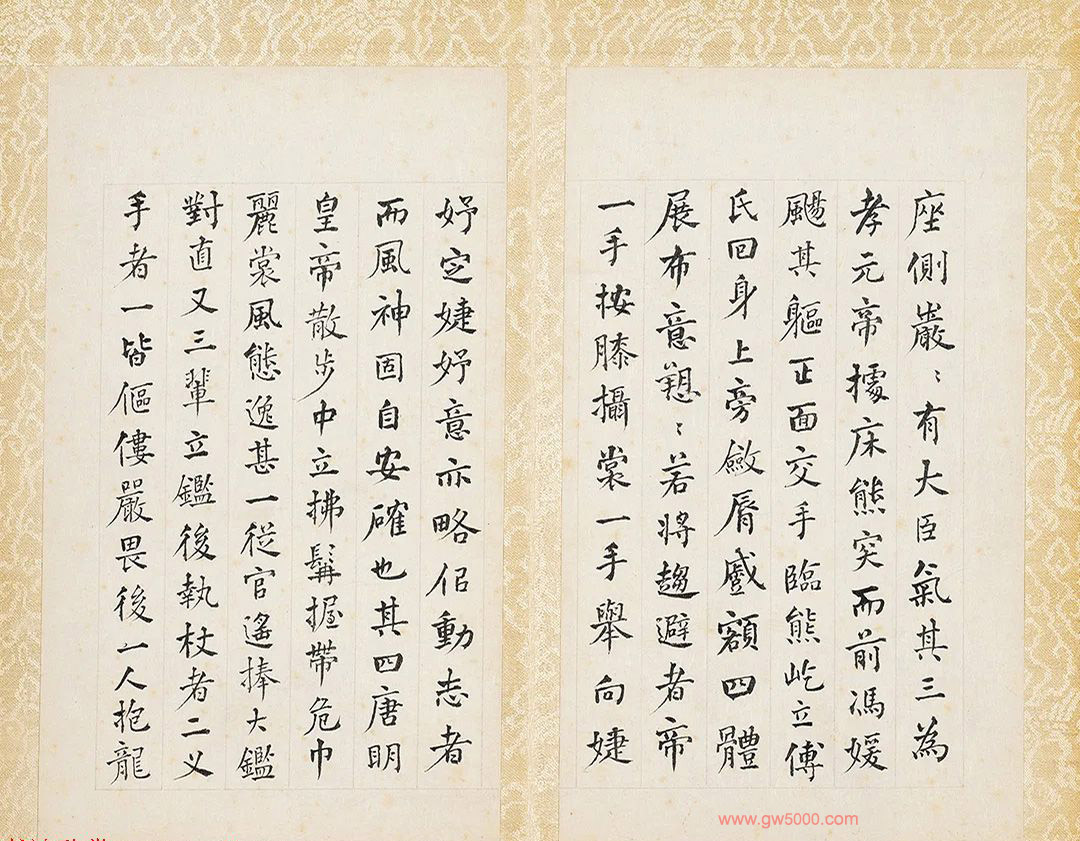 座側巖〻有大臣氣其三為
孝元帝據床熊突而前馮媛
颺其軀正面交手臨熊屹立傅
氏回身上旁斂脣蹙額四體
展布意愳〻若將趨避者帝
一手按膝攝裳一手舉向婕
妤定婕妤意亦略佋動志者
而風神固自安確也其四唐明
皇帝散步中立拂髯握帶危巾
麗裳風態逸甚一從官遙捧大鑑
對直又三輩立鑑後執杖者二义
手者一皆傴僂嚴畏後一人抱龍
www.gw5000.com